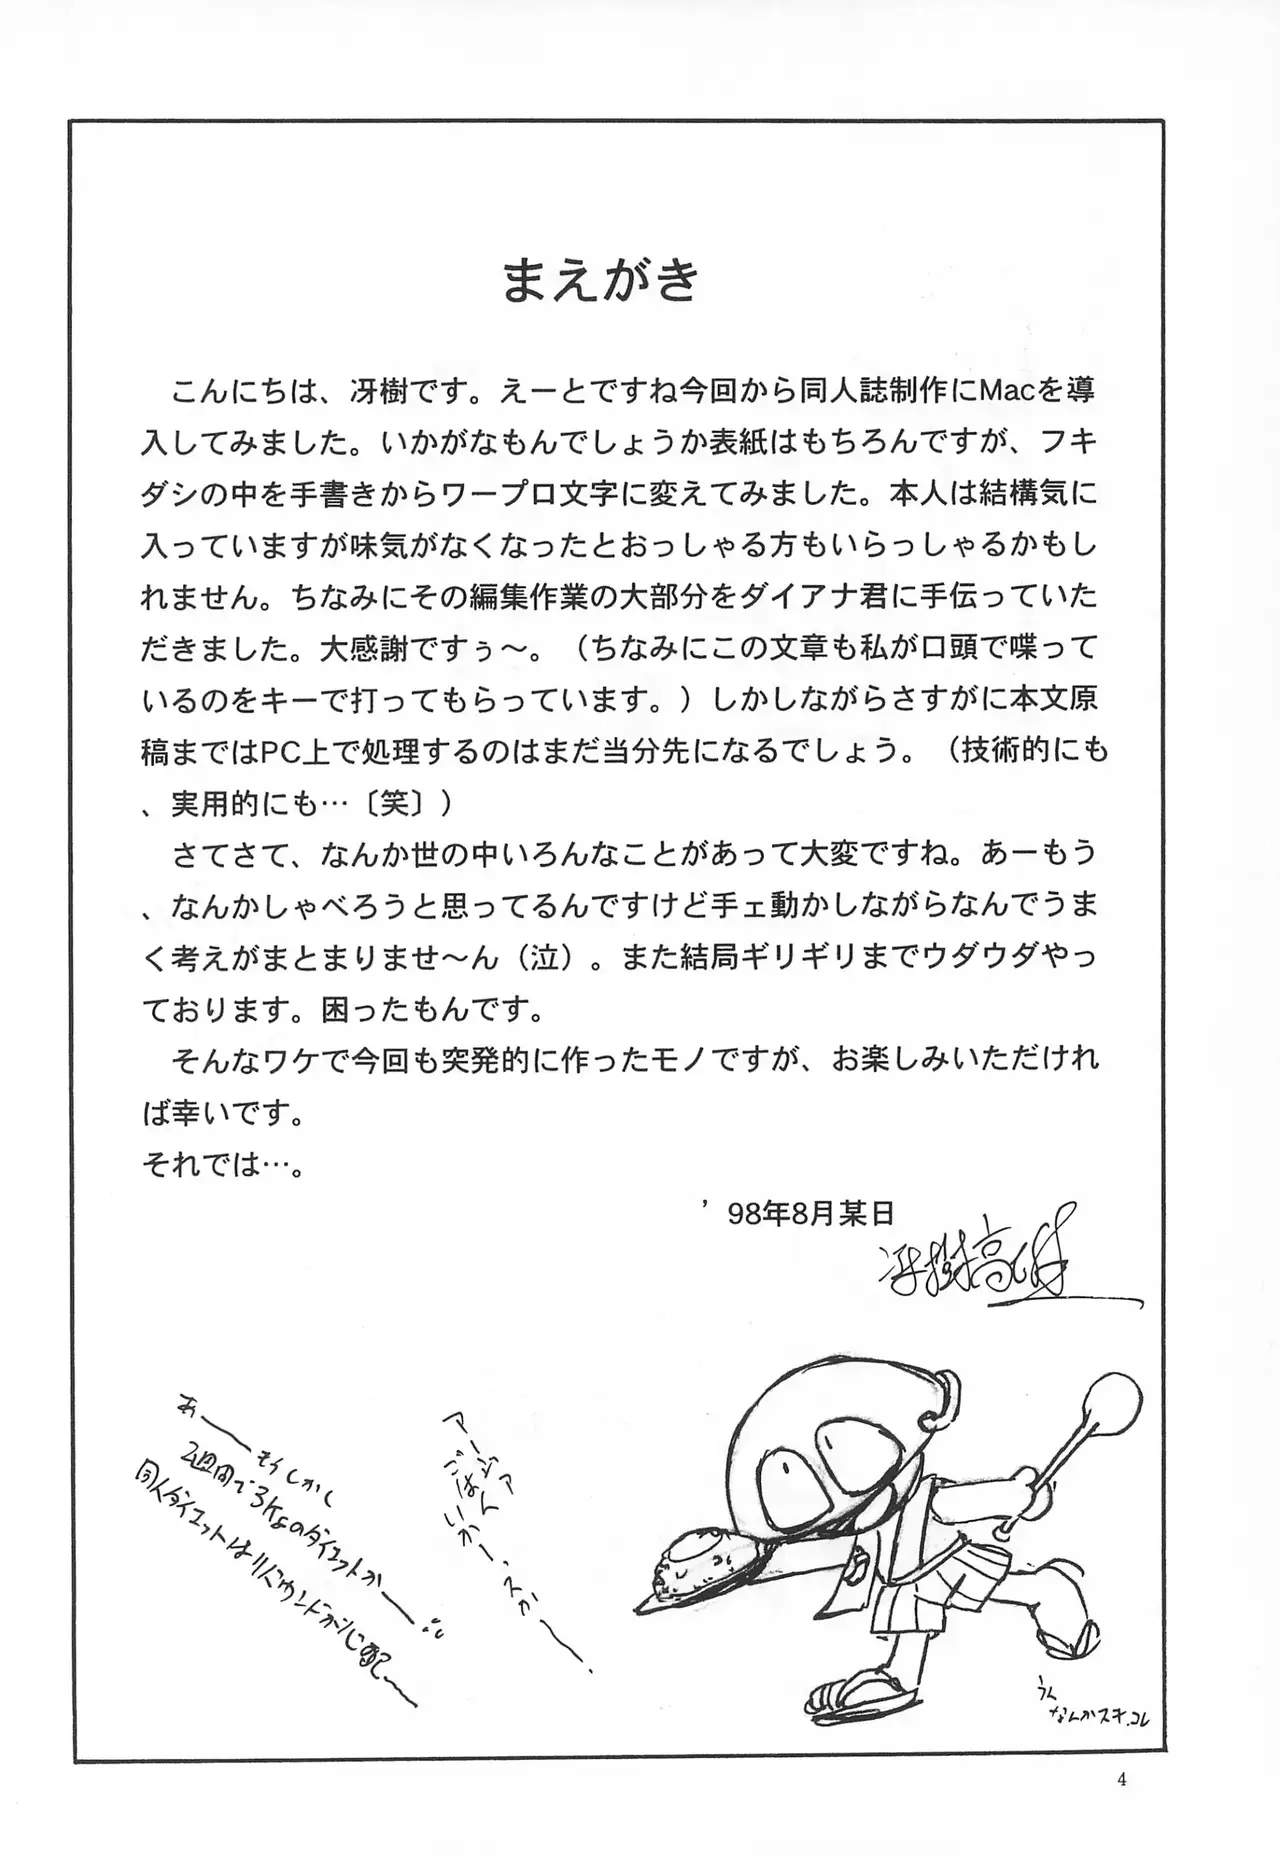 まえがき
　こんにちは、冴樹です。えーとですね今回から同人誌制作にMacを導
入してみました。いかがなもんでしょうか表紙はもちろんですが、フキ
ダシの中を手書きからワープロ文字に変えてみました。本人は結構気に
入っていますが味気がなくなったとおっしゃる方もいらっしゃるかもし
れません。ちなみにその編集作業の大部分をダイアナ君に手伝っていた
だきました。大感謝ですぅ～。（ちなみにこの文章も私が口頭で喋って
いるのをキーで打ってもらっています。）しかしながらさすがに本文原
稿まではPC上で処理するのはまだ当分先になるでしょう。（技術的にも
、実用的にも…〔笑〕）
　さてさて、なんか世の中いろんなことがあって大変ですね。あーもう
、なんかしゃべろうと思ってるんですけど手ェ動かしながらなんでうま
く考えがまとまりませ～ん（泣）。また結局ギリギリまでウダウダやっ
ております。困ったもんです。
　そんなワケで今回も突発的に作ったモノですが、お楽しみいただけれ
ば幸いです。
それでは…。
’98年8月某日
冴樹高雄
あーーもしかして
2週間で3Kgのダイエットかーー
同人ダイエットはリバウンドが心配ー
アージァァ
ごはんー
いかーースかーー.
うん
なんかスキ.コレ
4